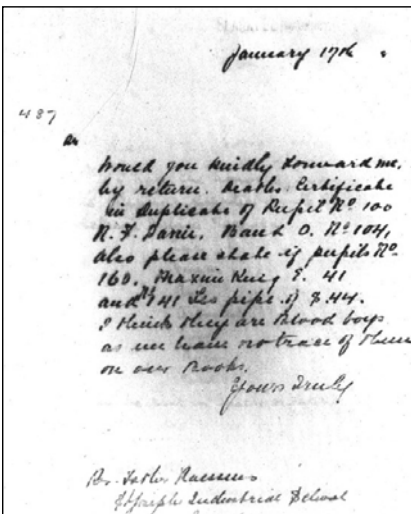 January 17th
487
Dr
Would you kindly forward me,
by return. Deaths Certificate
in Duplicate of Pupil No 100
R. F. Band O. No 104,
also please state if pupils No
160. E. 41
and No 141 pipe. of 44.
I think they are Blood boys
as we have no trace of them
on our Books.
Yours Truly
Rev. Father
St Joseph Industrial School